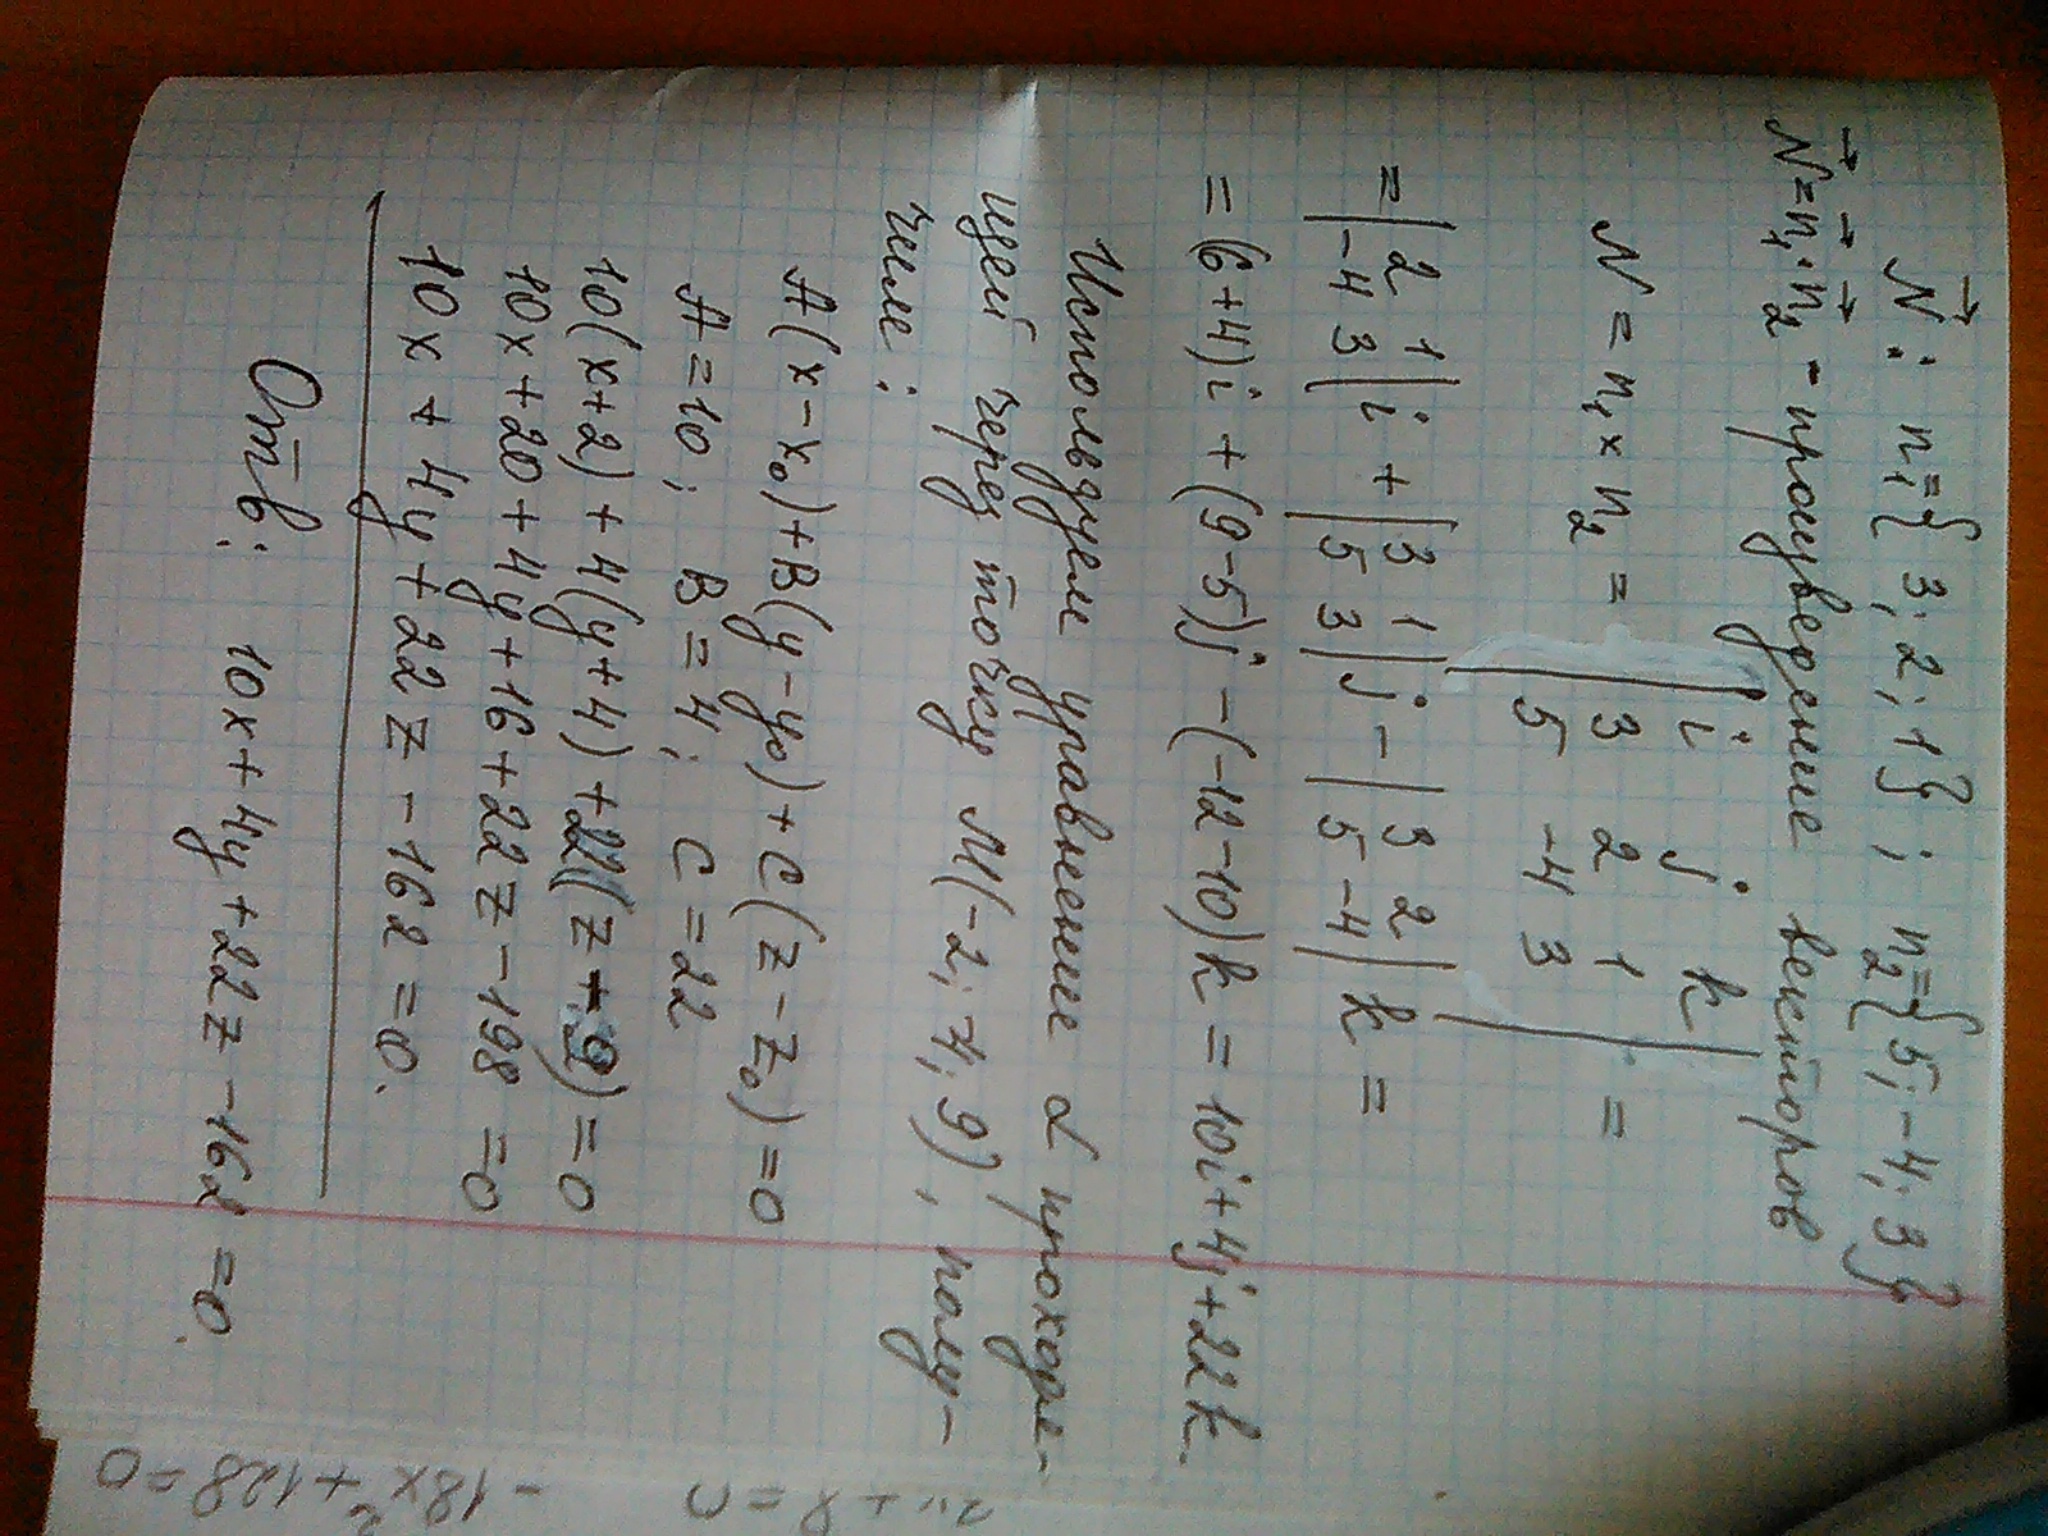 N⃗: n₁={3; 2; 1}; n₂={5; -4; 3}
N⃗=n⃗₁·n⃗₂ - произведение векторов
N = n₁ × n₂ = | i j k |
| 3 2 1 | =
| 5 -4 3 |
= | 2 1 | i + | 3 1 | j - | 3 2 | k =
| -4 3 | | 5 3 | | 5 -4 |
= (6+4)i + (9-5)j - (-12-10)k = 10i+4j+22k.
Используем уравнение α проходя-
щей через точку M(-2; -4; 9), полу-
чаем:
A(x-x₀)+B(y-y₀)+C(z-z₀)=0
A=10; B=4; C=22
10(x+2)+4(y+4)+22(z-9)=0
10x+20+4y+16+22z-198=0
10x+4y+22z-162=0.
Ответ: 10x+4y+22z-162=0.
+8=0
-18x²+128=0